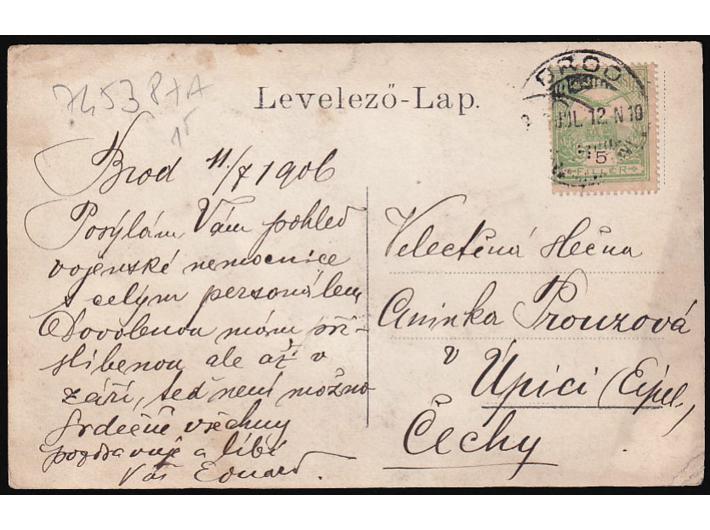 7453 P+A
15
Levelező-Lap.
BROD
JUL. 12. N 10
5
FILLÉR
Brod 11/7 1906
Posýlám Vám pohled
vojenské nemocnice
s celým personálem
Dovolenou mám při-
slíbenou ale až v
září, teď není možno
Srdečně všechny
pozdravuje a líbí
Váš Eduard.
Velectěná slečna
Aninka Prouzová
v Úpici (Eipel)
Čechy